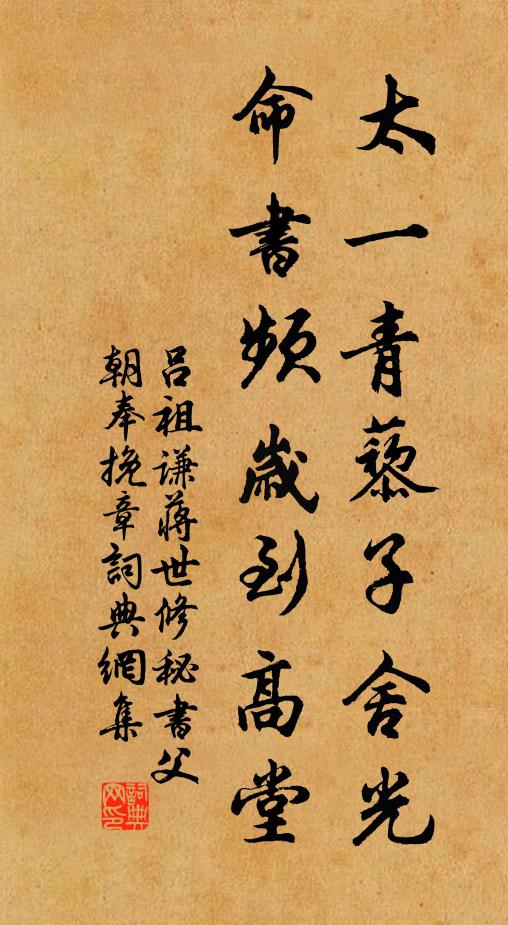 太一青藜子舍光
命書頻歲到高堂
呂祖謙蔣世修秘書父
朝奉挽章詞典網集
詞典网印